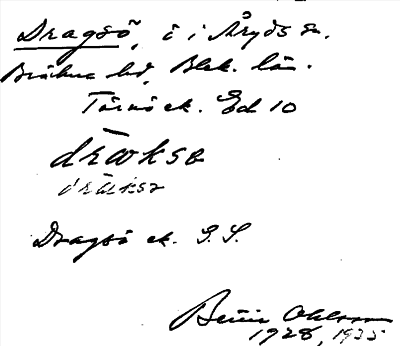 Dragsö, ö i Åryds sn.
Bräkne hd, Blek. län.
Tärnö ek. Ed 10
drākse
drākse
Dragsö ek. G.S.
Bengt Ohlsson
1928, 1935